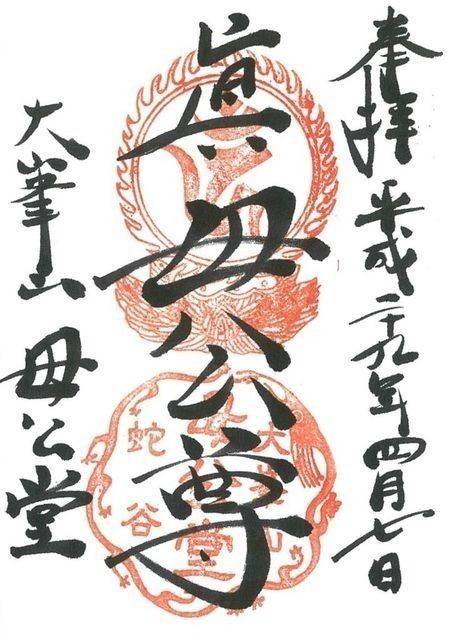 奉拝 平成二十九年四月七日
眞母公尊
大峯山 母公堂
大峯山
母公堂
蛇谷